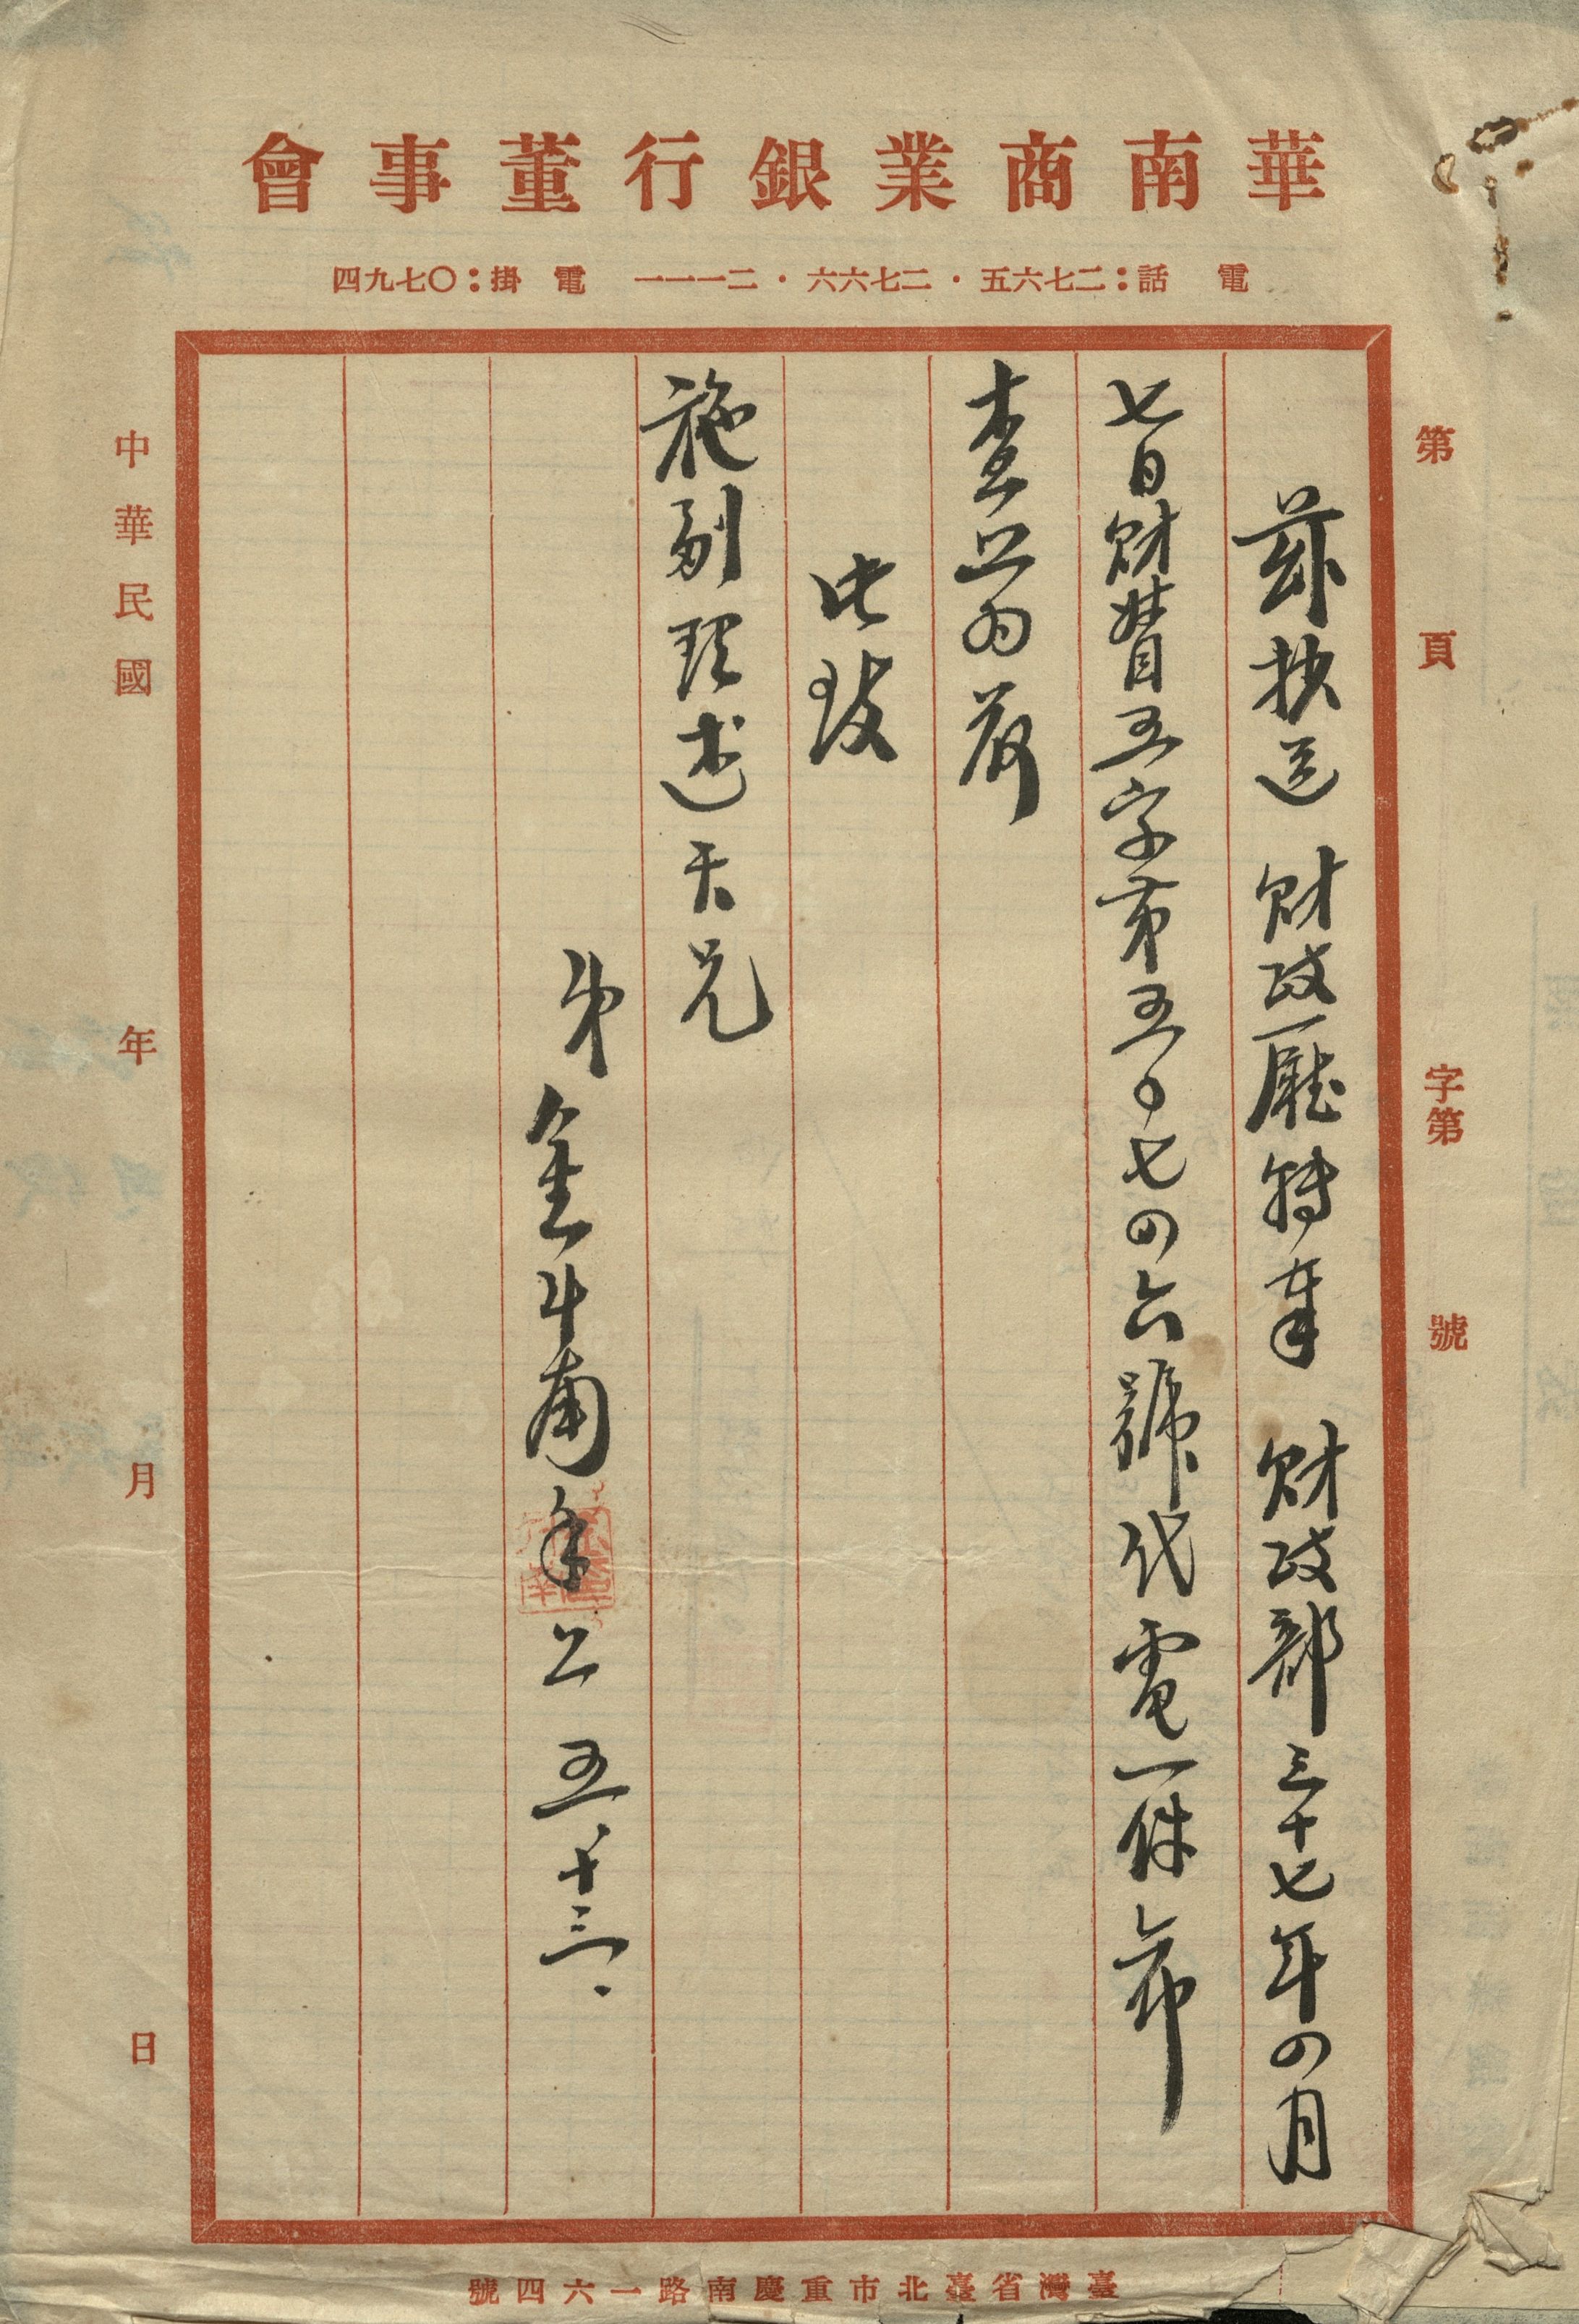 華南商業銀行董事會
電話：二七六五・二七六六・二一一一　電掛：〇七九四
第　頁　字第　號
茲抄送　財政廳轉奉　財政部三十七年四月
七日財督五字第五〇七四六號代電一件希
查照為荷
此致
施副理述天兄
弟金斗南手上　五・十三・
中華民國　年　月　日
臺灣省臺北市重慶南路一六四號